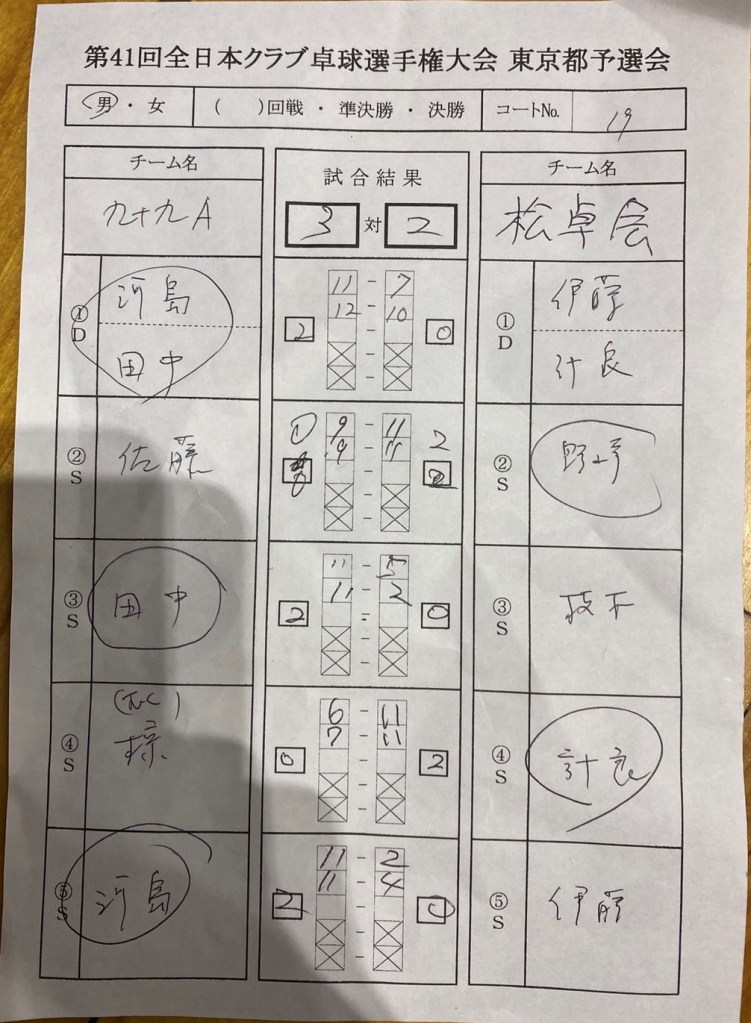 第41回全日本クラブ卓球選手権大会 東京都予選会
男・女 ( )回戦・準決勝・決勝 コートNo. 19
チーム名 試合結果 チーム名
九十九A 3 対 2 松卓会
①D 河島 田中 2 0 伊藤 計良 ①D
11 - 7
12 - 10
②S 佐藤 0 2 ②S
9 - 11
9 - 11
③S 田中 2 0 ③S
11 - 5
11 - 2
④S 0 2 計良 ④S
6 - 11
7 - 11
⑤S 河島 2 0 伊藤 ⑤S
11 - 2
11 - 4